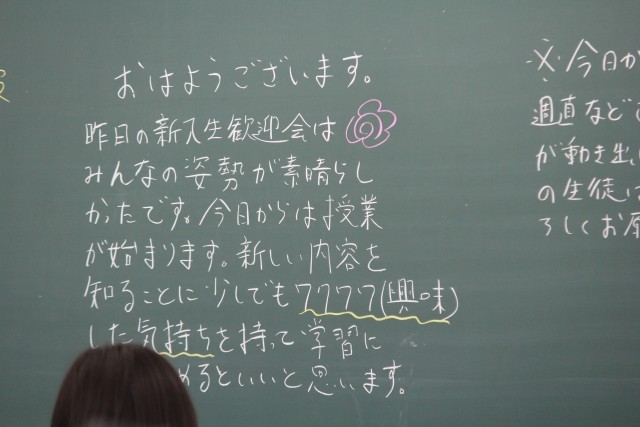 おはようございます。
昨日の新入生歓迎会は
みんなの姿勢が素晴らし
かったです。今日からは授業
が始まります。新しい内容を
知ることに少しでもワクワク(興味)
した気持ちを持って学習に
めるといいと思います。
※今日か
週直など
が動き出し
の生徒は
ろしくお願